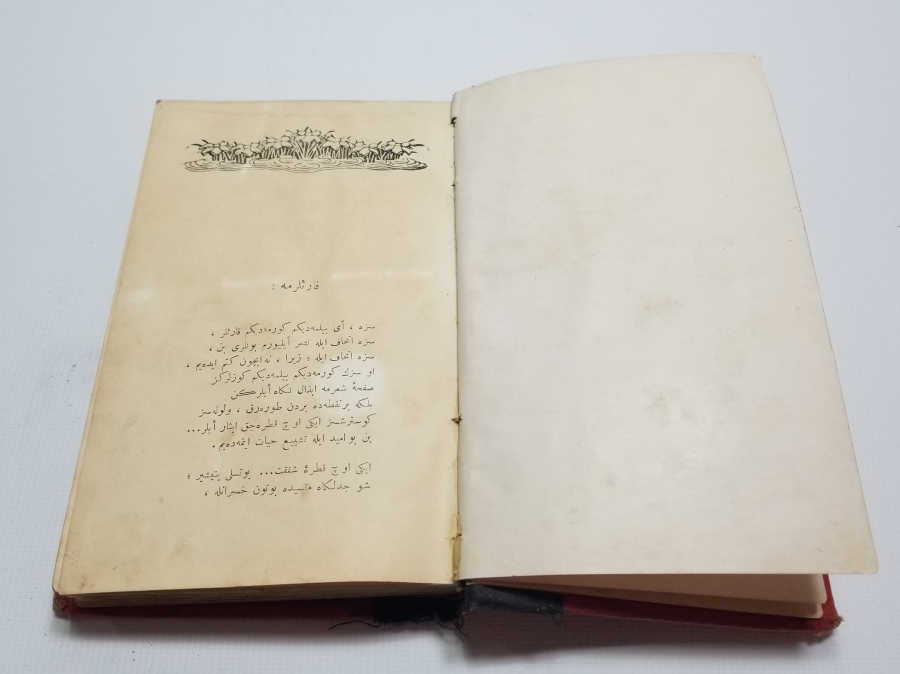 قارئلرمه :
سزه ، أی بیلمه‌دیكم كورمه‌دیكم قارئلر ،
سزه اتحاف ایله نشر أیلیورم بونلری بن ،
سزه اتحاف ایله ؛ زیرا ، نه ایچون كتم ایده‌یم ،
او سزك كورمه‌دیكم بیلمه‌دیكم كوزلركز
صفحۀ شعرمه ابذال نكاه أیلركن
بلكه بر نقطه‌ده بردن طوره‌رق ، ولوله‌سز
كوسترشسز ایكی اوچ قطره‌جق ایثار أیلر...
بن بو امید ایله تشییع حیات ایتمه‌ده‌یم .
ایكی اوچ قطرۀ شفقت... بو تسلی یتیشیر ؛
شو جدلكاه مـسیده بوتون خسرانله ،